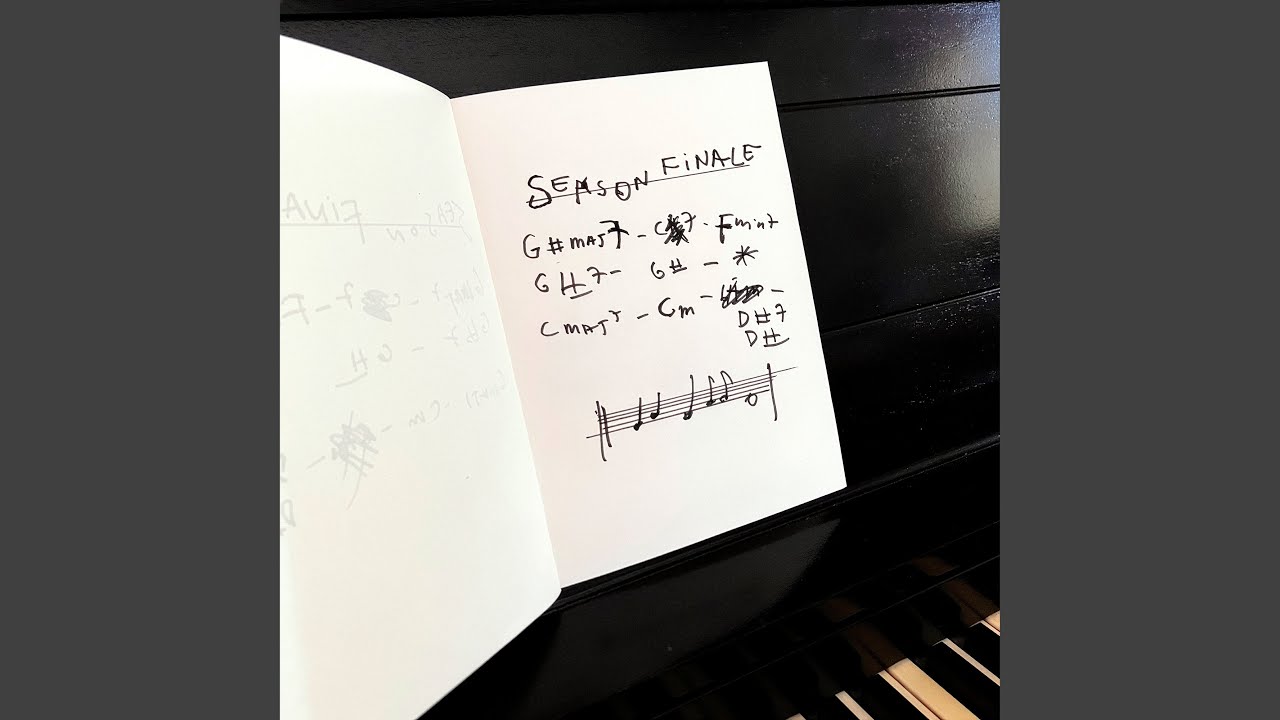 SEASON FINALE
G#MAJ7 - C 7 - Fmin7
G#7 - G# - *
CMAJ7 - Cm - -
D#7
D#